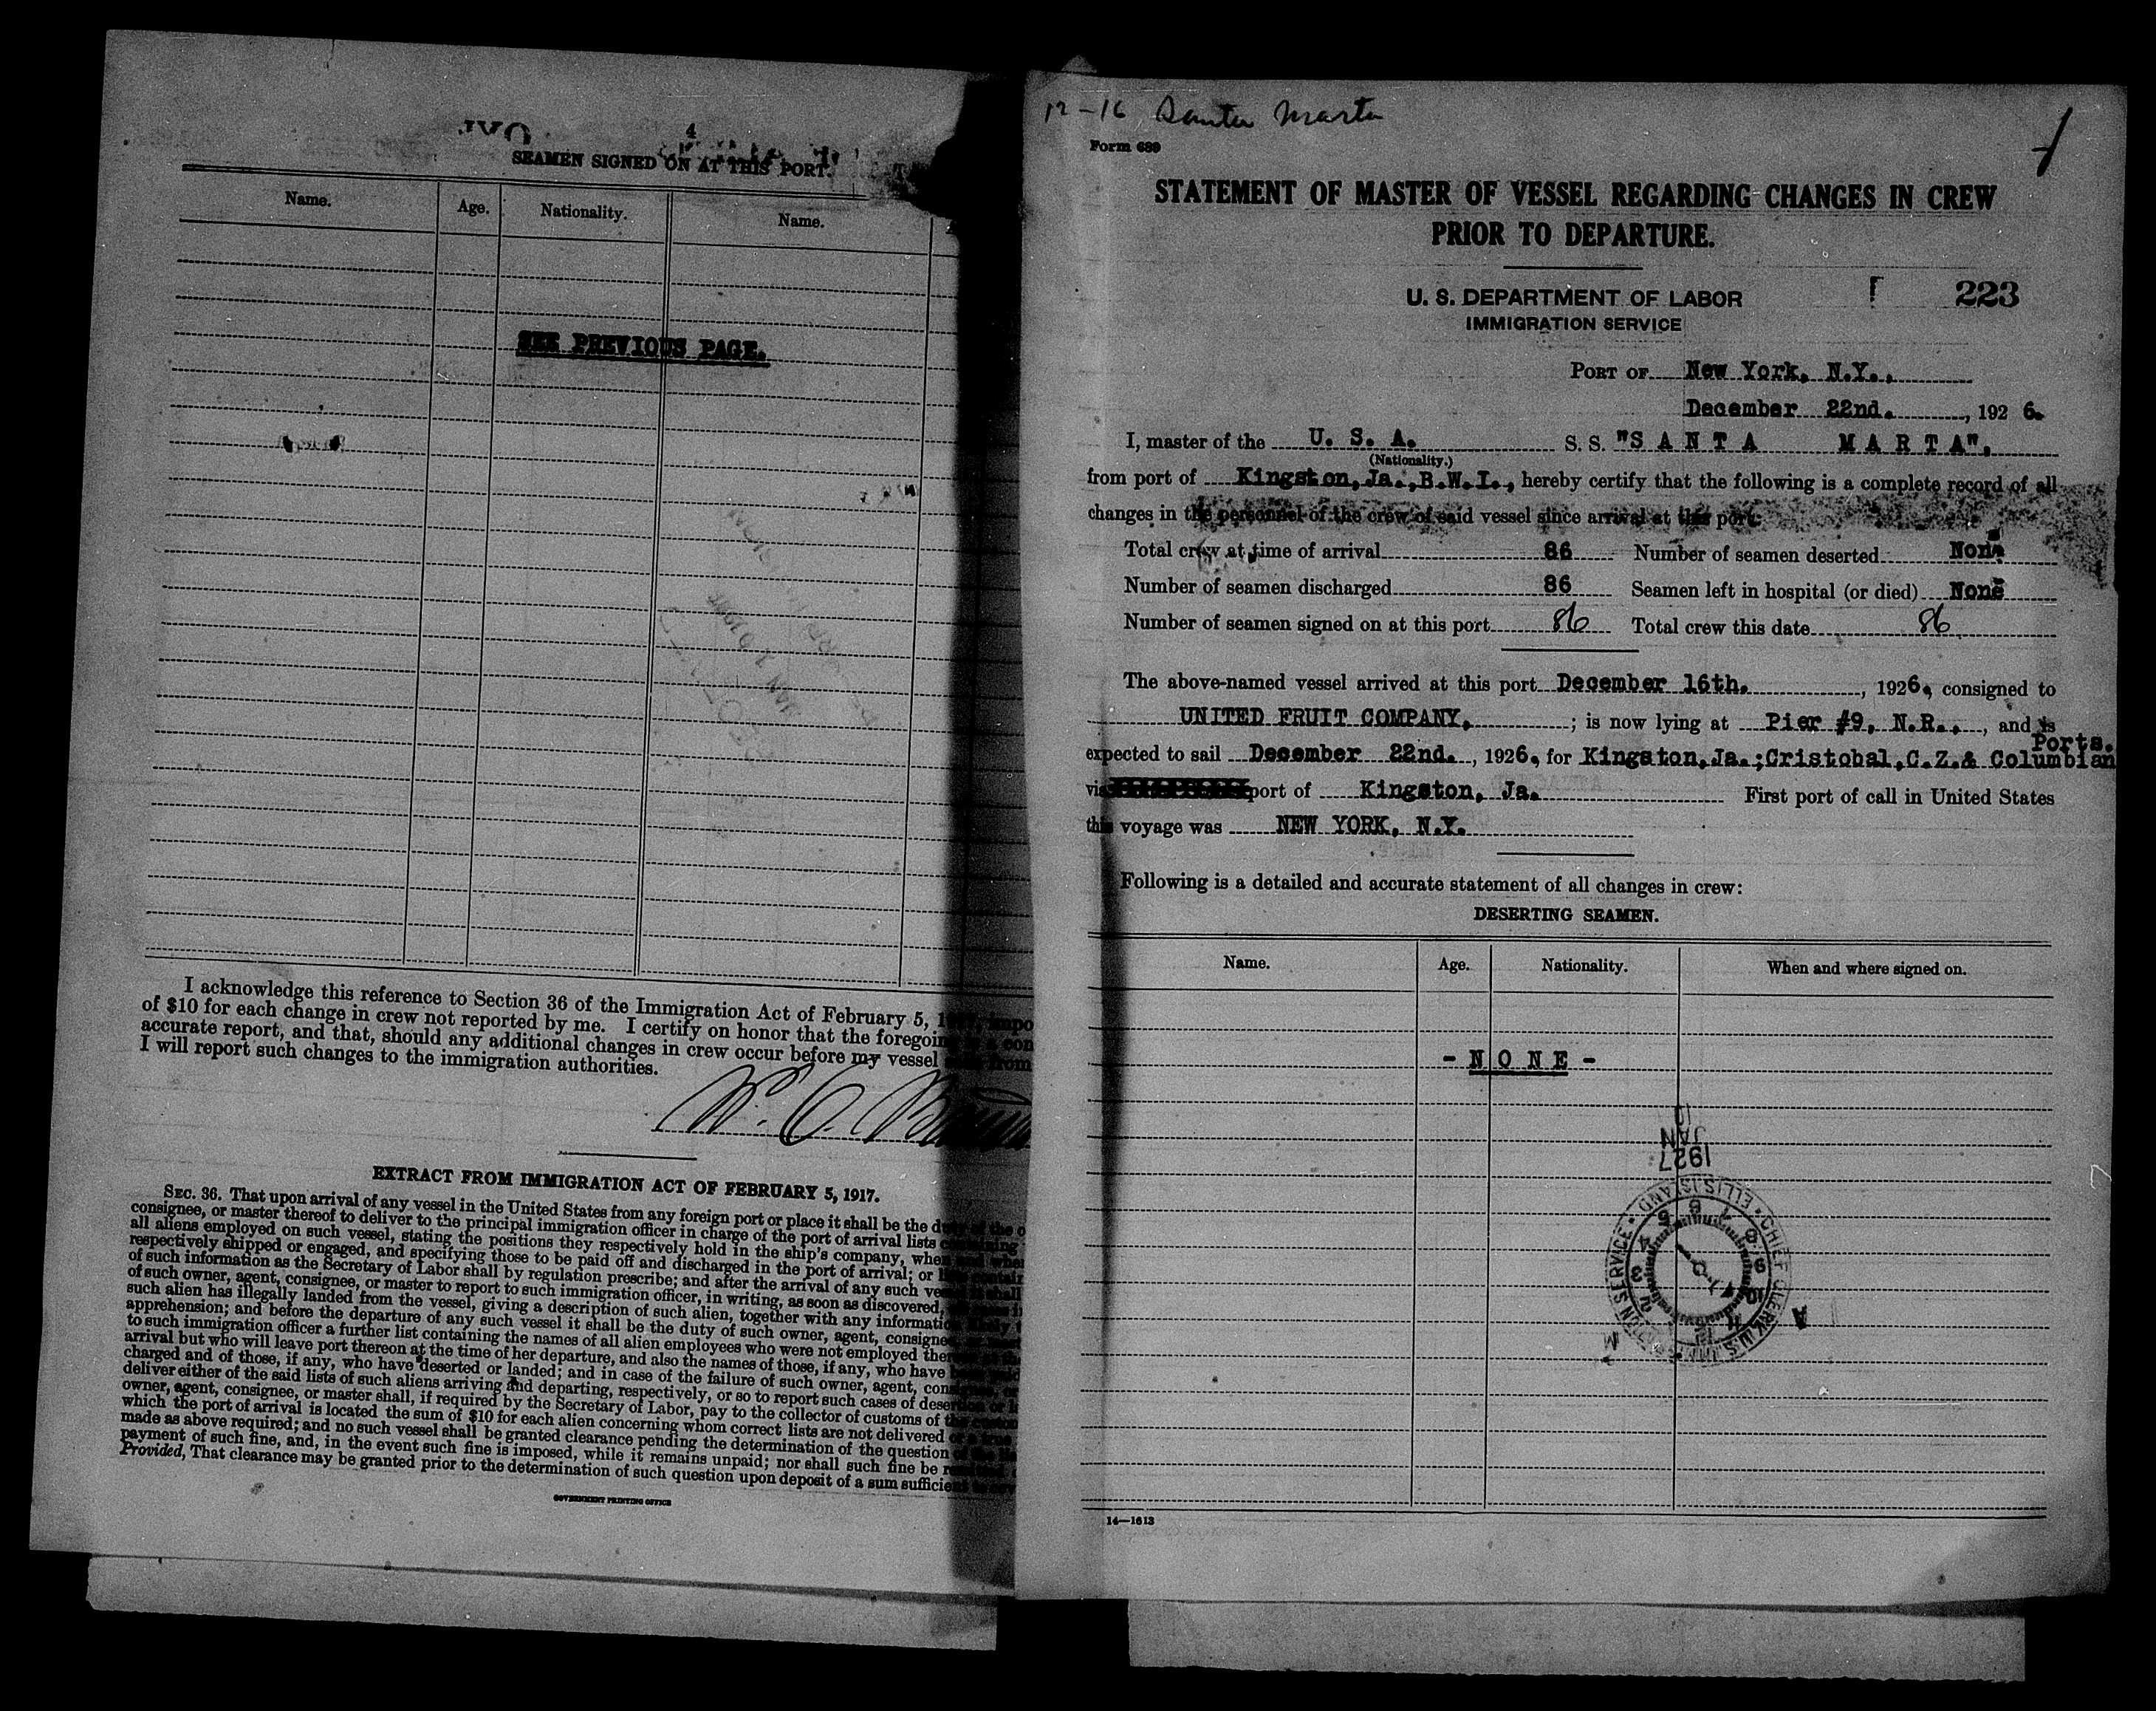 4
SEAMEN SIGNED ON AT THIS PORT.
Name. Age. Nationality. Name.
SEE PREVIOUS PAGE.
I acknowledge this reference to Section 36 of the Immigration Act of February 5,
of $10 for each change in crew not reported by me. I certify on honor that the foregoing
accurate report, and that, should any additional changes in crew occur before my vessel from
I will report such changes to the immigration authorities.
EXTRACT FROM IMMIGRATION ACT OF FEBRUARY 5, 1917.
SEC. 36. That upon arrival of any vessel in the United States from any foreign port or place it shall be the duty of the
consignee, or master thereof to deliver to the principal immigration officer in charge of the port of arrival lists containing
all aliens employed on such vessel, stating the positions they respectively hold in the ship's company, when and
respectively shipped or engaged, and specifying those to be paid off and discharged in the port of arrival; or
of such information as the Secretary of Labor shall by regulation prescribe; and after the arrival of any such vessel it shall
of such owner, agent, consignee, or master to report to such immigration officer, in writing, as soon as discovered,
such alien has illegally landed from the vessel, giving a description of such alien, together with any information
apprehension; and before the departure of any such vessel it shall be the duty of such owner, agent, consignee
to such immigration officer a further list containing the names of all alien employees who were not employed
arrival but who will leave port thereon at the time of her departure, and also the names of those, if any, who have
charged and of those, if any, who have deserted or landed; and in case of the failure of such owner, agent,
deliver either of the said lists of such aliens arriving and departing, respectively, or so to report such cases of
owner, agent, consignee, or master shall, if required by the Secretary of Labor, pay to the collector of customs of
which the port of arrival is located the sum of $10 for each alien concerning whom correct lists are not delivered
made as above required; and no such vessel shall be granted clearance pending the determination of the question
payment of such fine, and, in the event such fine is imposed, while it remains unpaid; nor shall such fine be
Provided, That clearance may be granted prior to the determination of such question upon deposit of a sum
GOVERNMENT PRINTING OFFICE
12-16 Santa Marta
Form 689
STATEMENT OF MASTER OF VESSEL REGARDING CHANGES IN CREW
PRIOR TO DEPARTURE.
U. S. DEPARTMENT OF LABOR 223
IMMIGRATION SERVICE
PORT OF New York, N.Y.,
December 22nd., 1926.
I, master of the U. S. A. S. S. "S A N T A M A R T A",
(Nationality.)
from port of Kingston, Ja., B.W.I., hereby certify that the following is a complete record of all
changes in the personnel of the crew of said vessel since arrival at this port:
Total crew at time of arrival 86 Number of seamen deserted None
Number of seamen discharged 86 Seamen left in hospital (or died) None
Number of seamen signed on at this port 86 Total crew this date 86
The above-named vessel arrived at this port December 16th., 1926, consigned to
UNITED FRUIT COMPANY, ; is now lying at Pier #9, N.R., , and is
Ports.
expected to sail December 22nd., 1926, for Kingston, Ja.; Cristobal, C.Z. & Columbian
via port of Kingston, Ja. First port of call in United States
this voyage was NEW YORK, N.Y.
Following is a detailed and accurate statement of all changes in crew:
DESERTING SEAMEN.
Name. Age. Nationality. When and where signed on.
- N O N E -
JAN
1927
CHIEF CLERK U.S. IMMIGRATION SERVICE • ELLIS ISLAND
14—1613